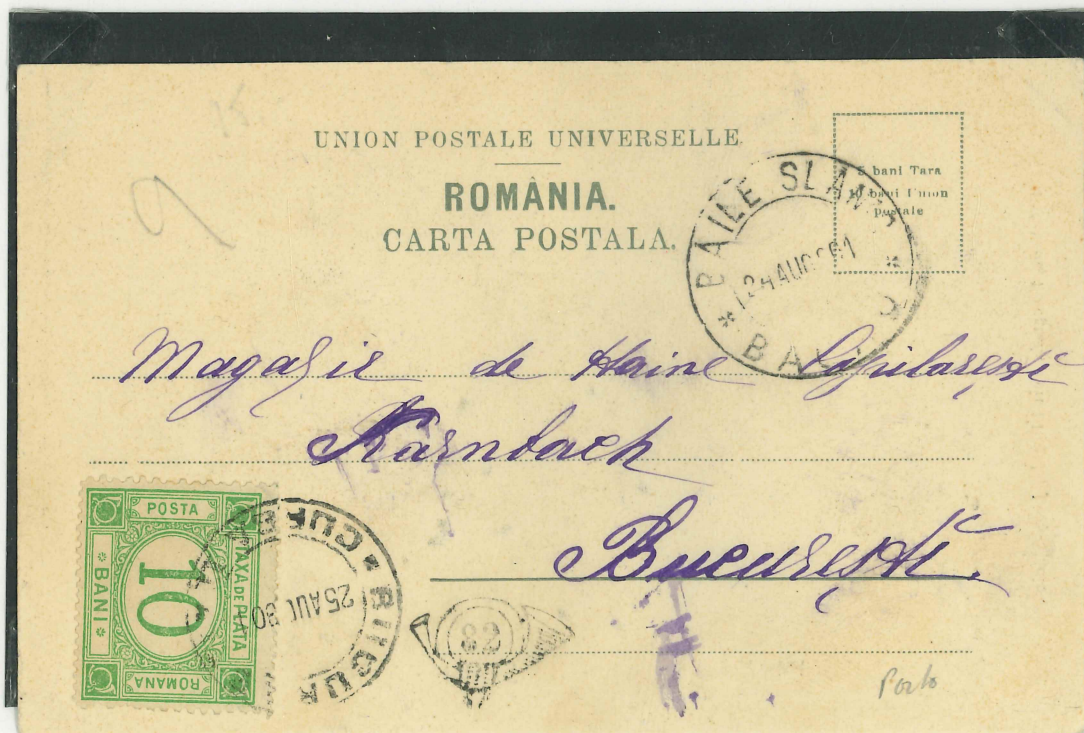 UNION POSTALE UNIVERSELLE
ROMÂNIA.
CARTA POSTALA.
5 bani Tara
10 bani Union
postale
BAILE SLANIC
24 AUG 901
Magazie de Haine
Karnbach
București.
POSTA
TAXA DE PLATA
10
BANI
ROMANA
BUCUR
25 AUG
82
Porto